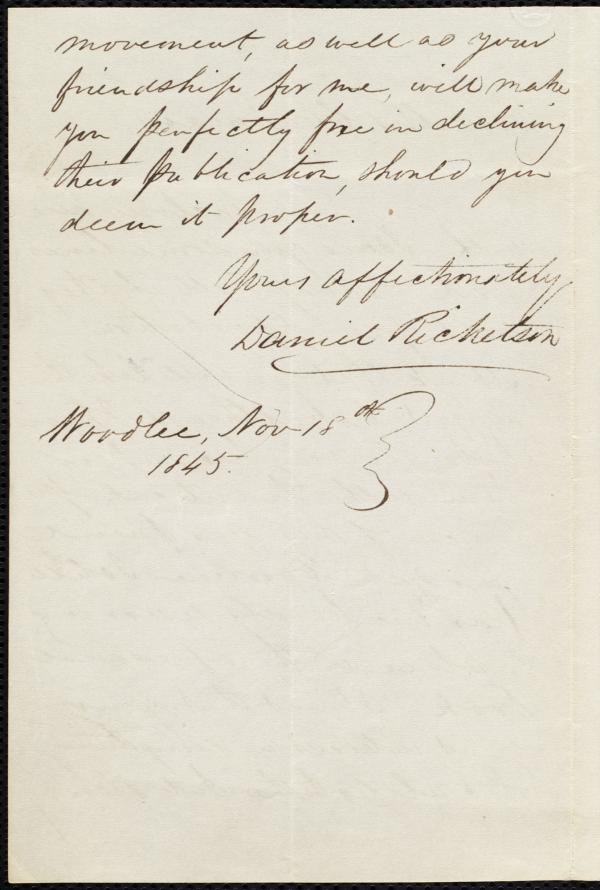 movement, as well as your
friendship for me, will make
you perfectly free in declining
their publication, should you
deem it proper.
Yours affectionately
Daniel Ricketson
Woodlee, Nov 18th
1845.